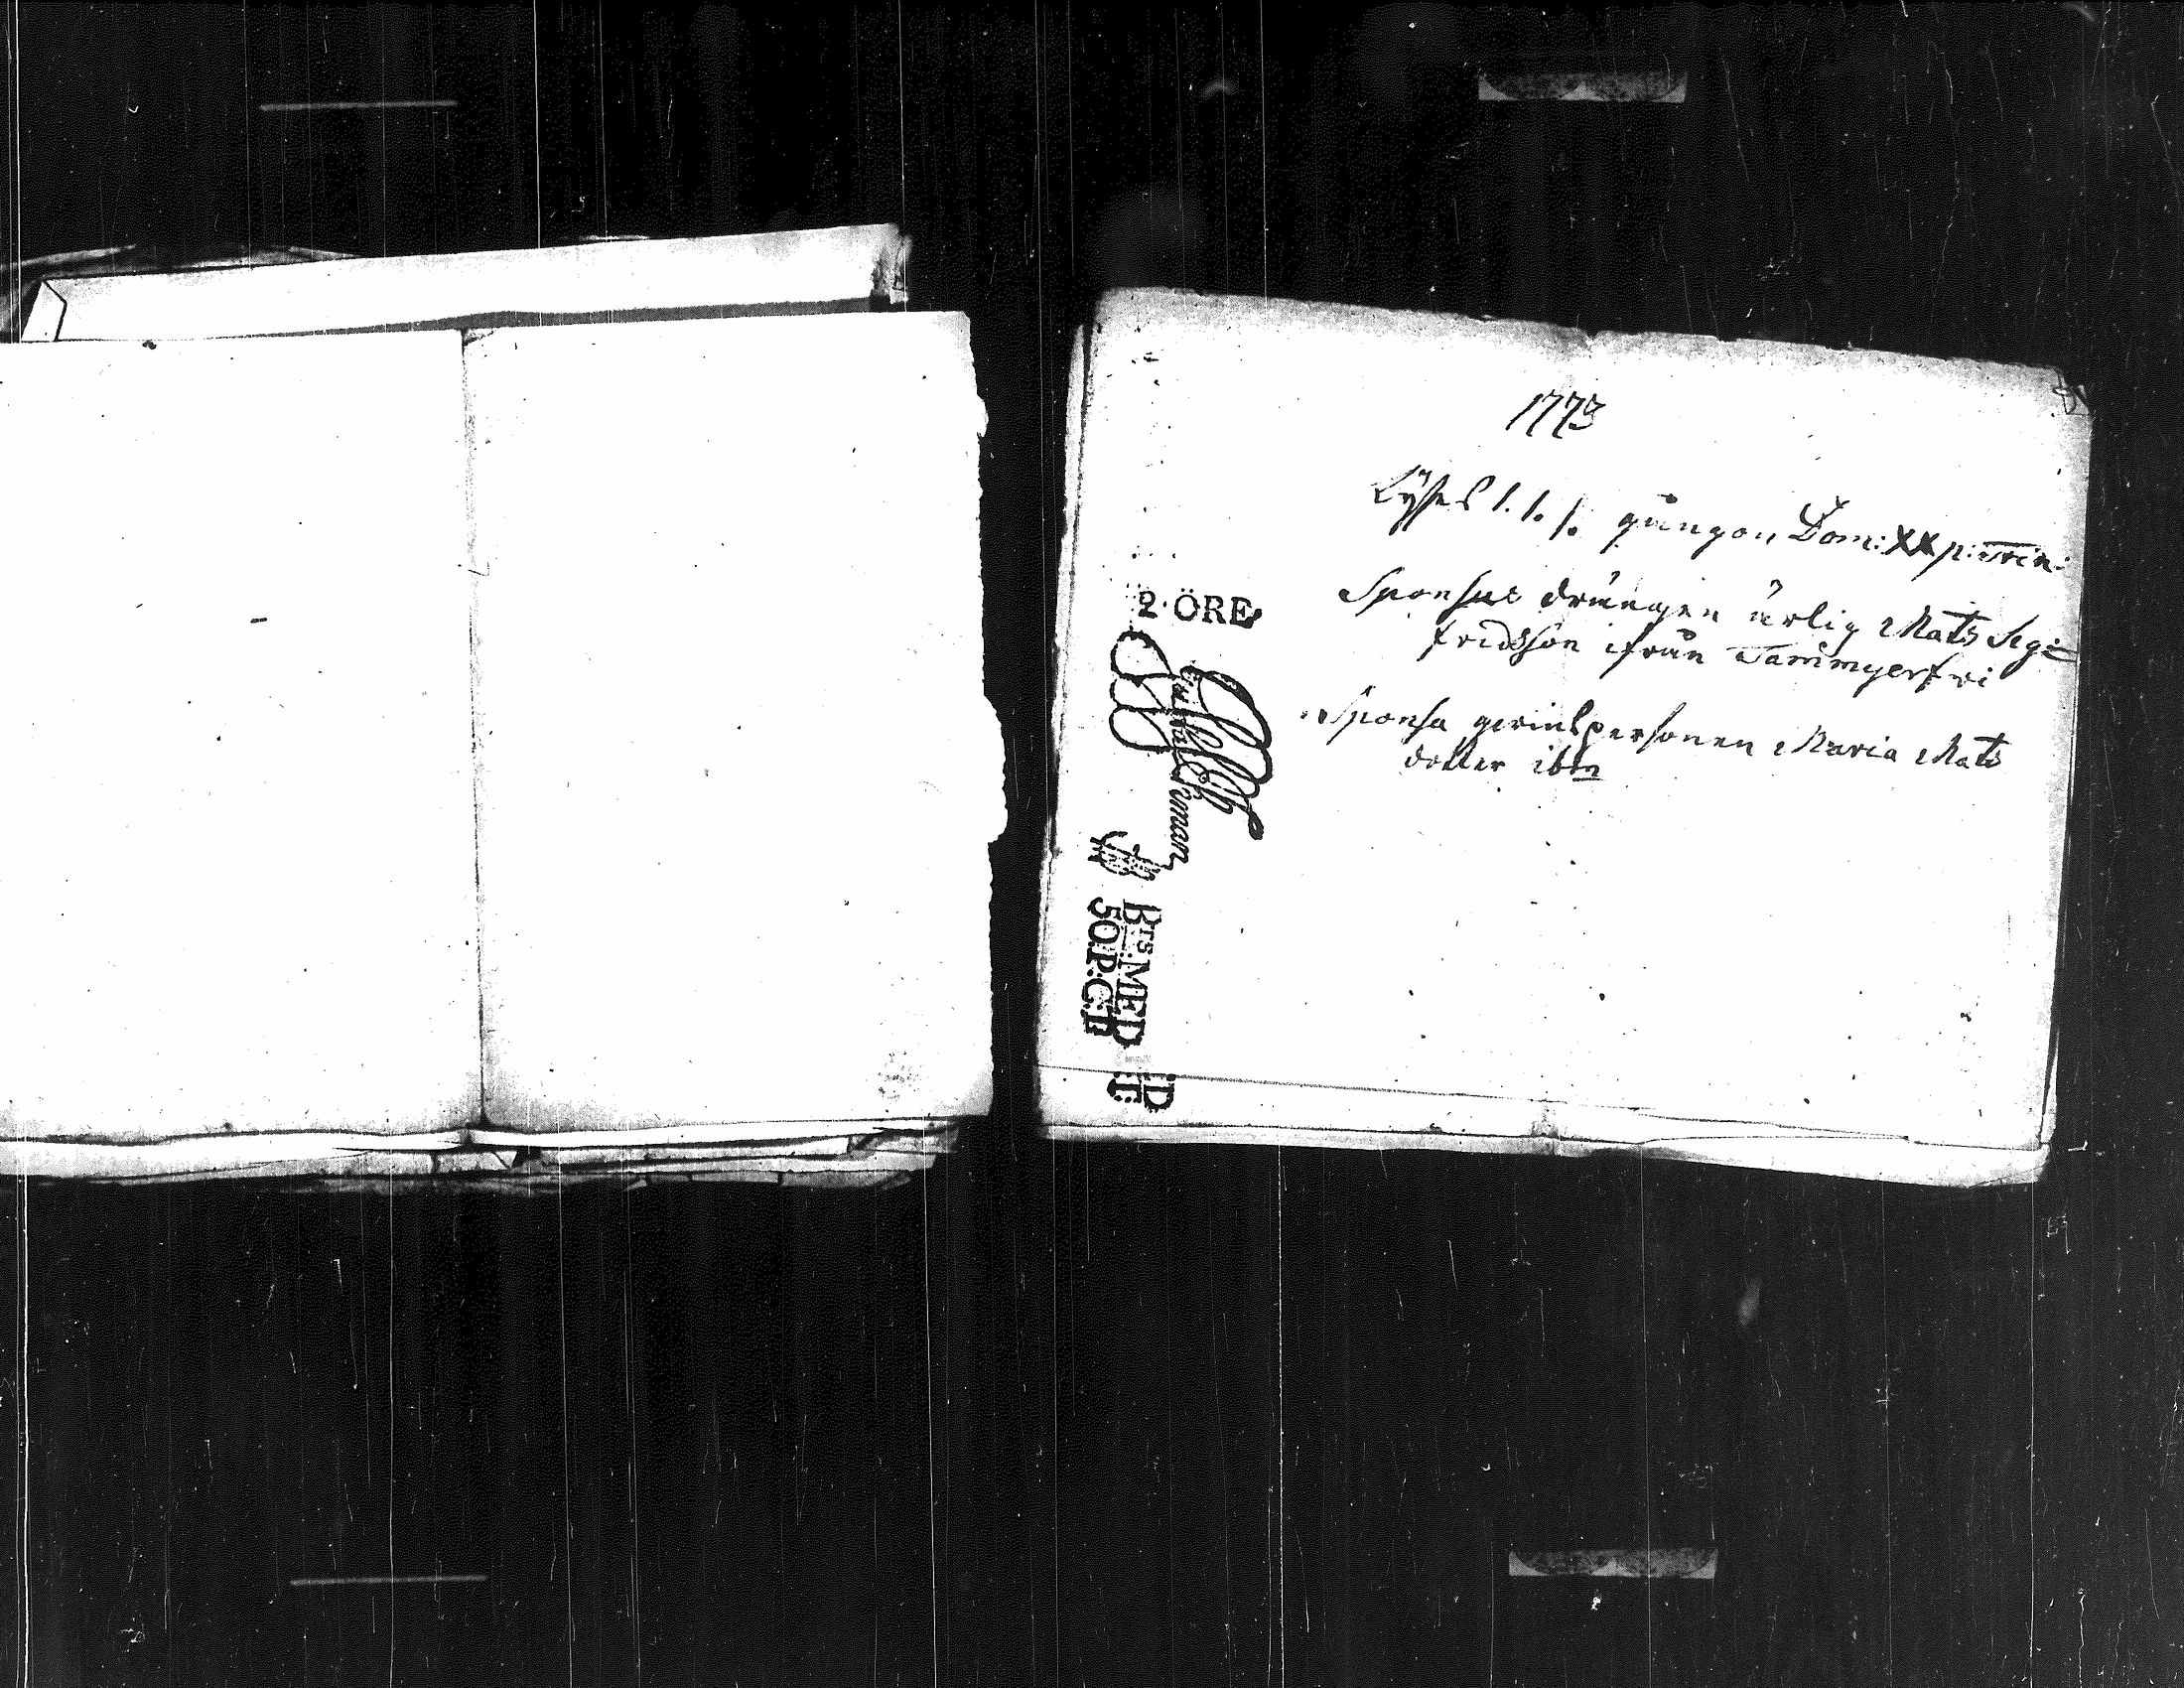 1773
Lyses 1. 1. 1. gången Dom: XX p: Trin:
Sponsus drängen ärlig Mats Sig=
fridsson ifrån Tammyerfwi
Sponsa qwinspersonen Maria Mats
dotter ibm
2·ÖRE
BTS. MED
50.P.C:T
ED
T: